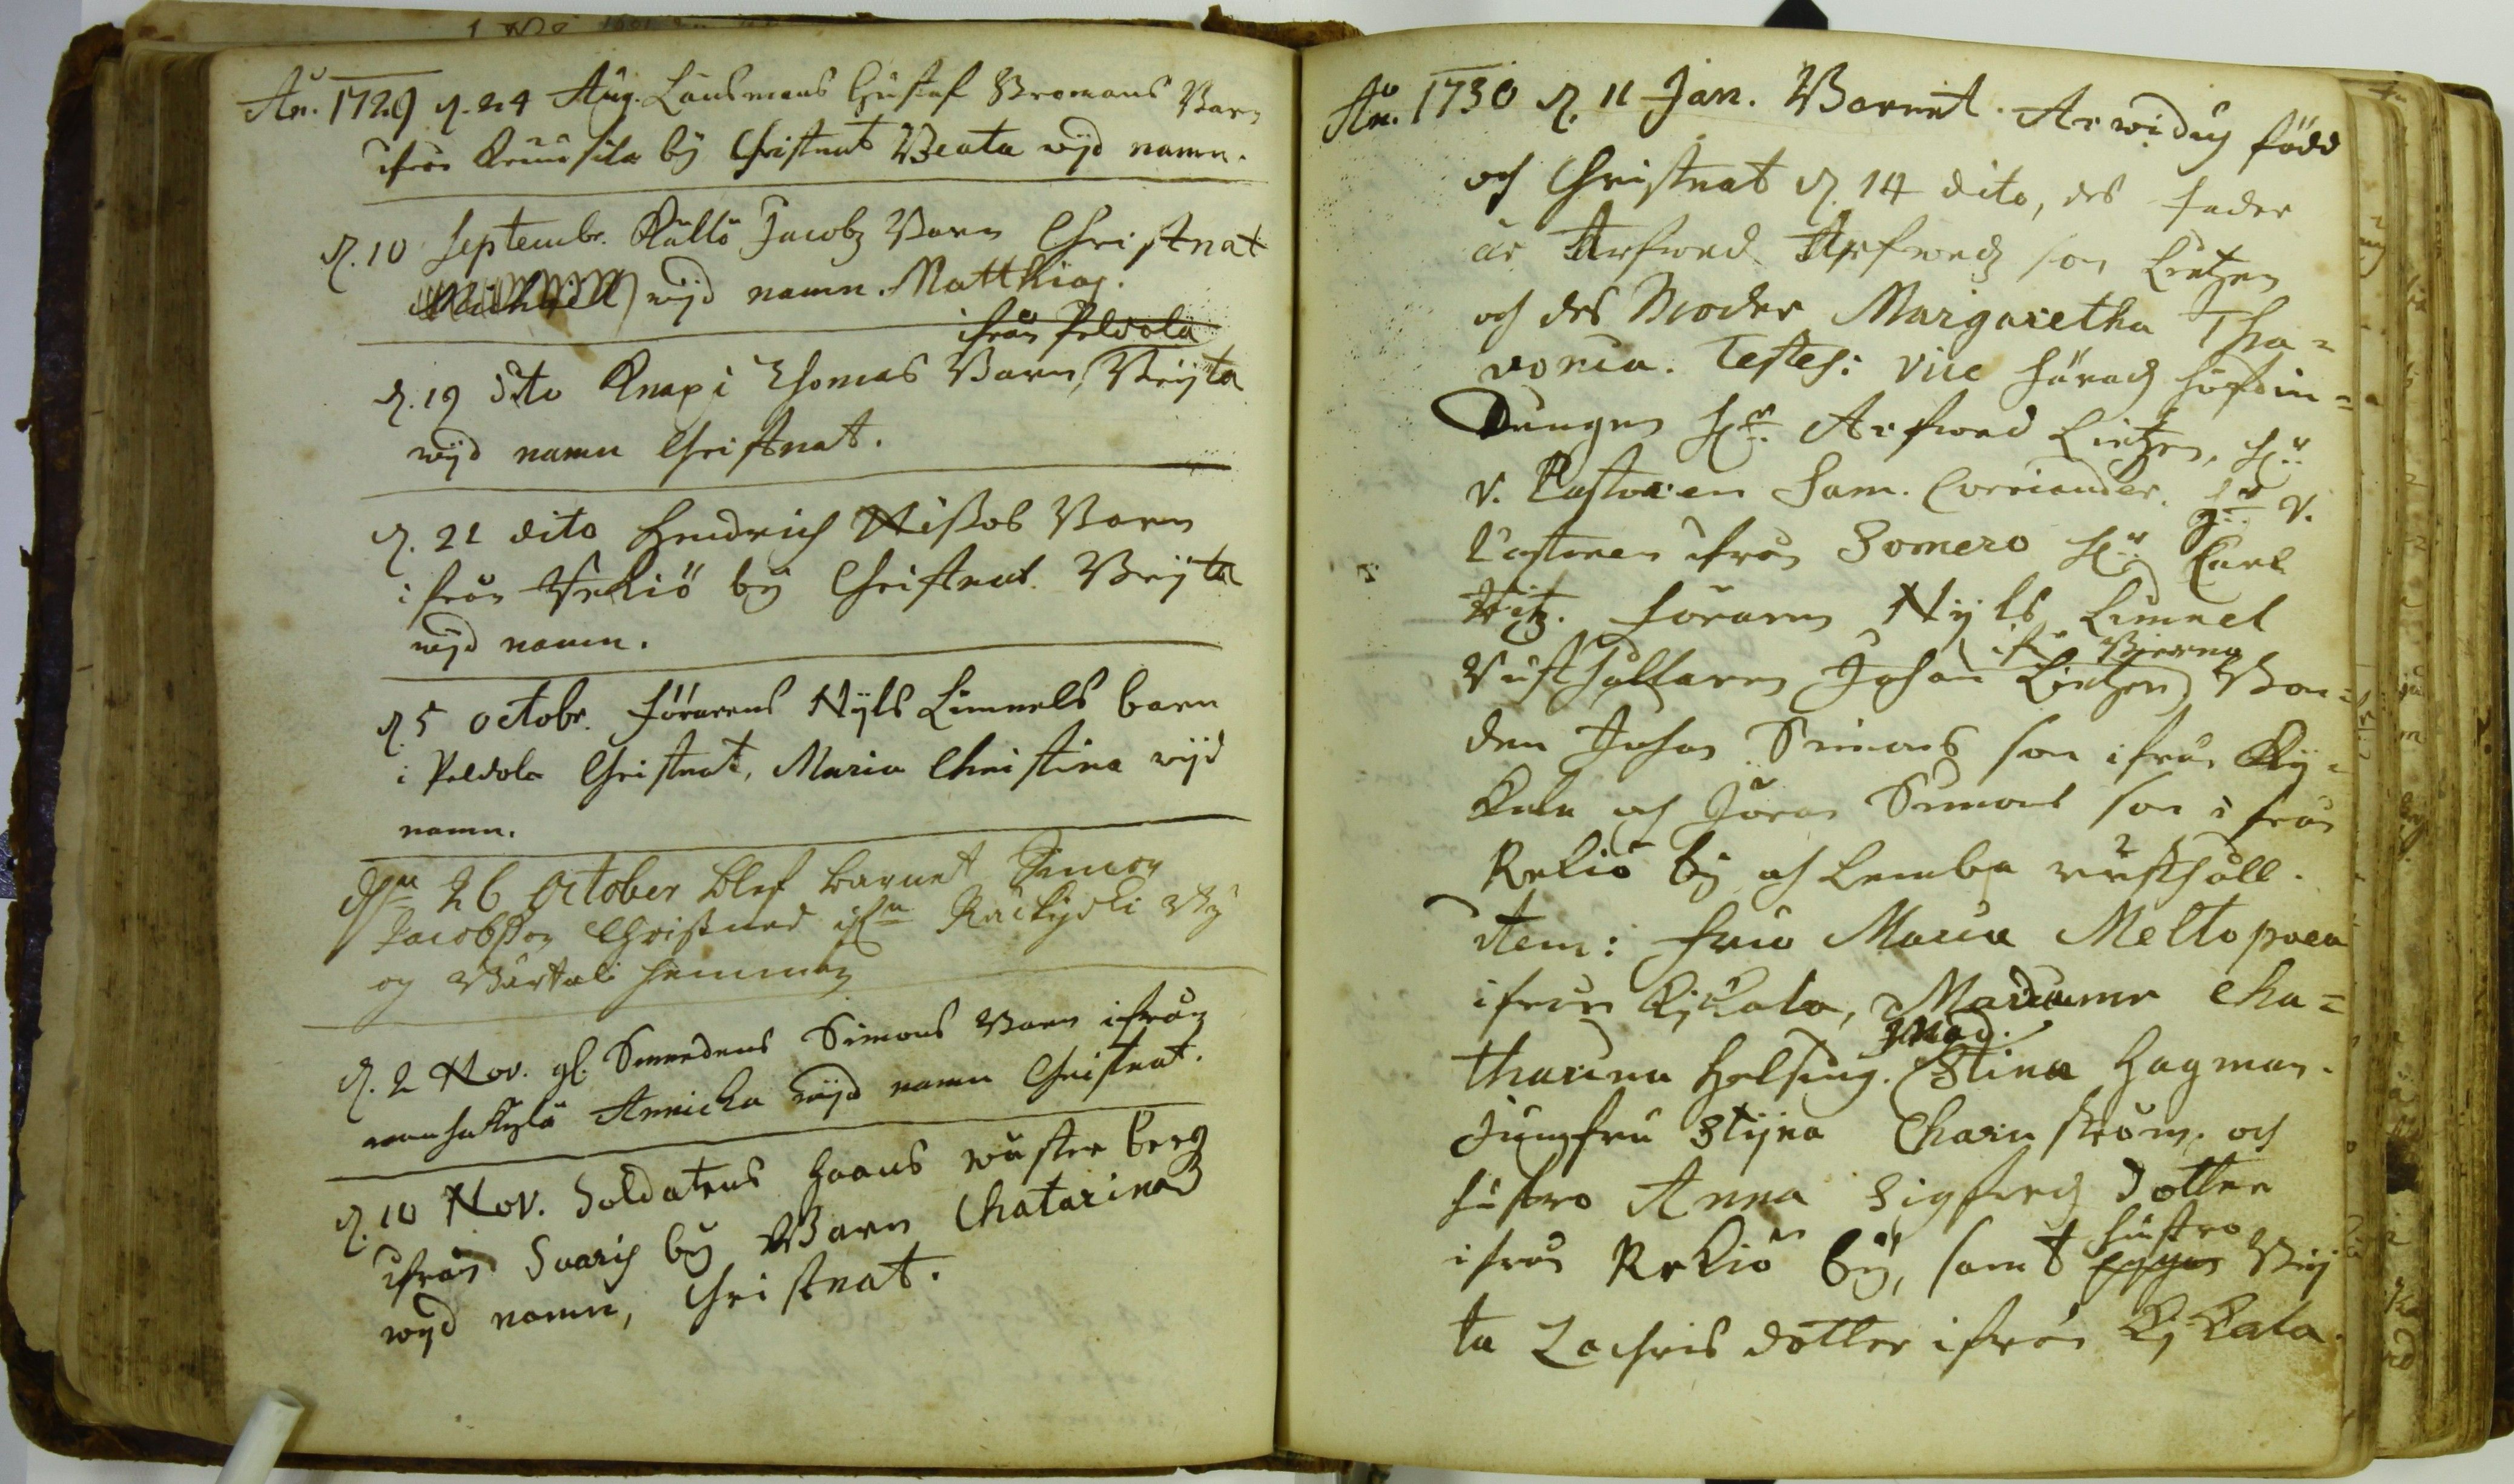 Ao. 1729 d. 24 Aug. Länsmans Gustaf Bromans Barn
ifrån by Christnat Beata wijd namn.
d. 10 Septembr. Kullo Jacobz Barn Christnat
Michaell wijd namn. Matthias.
ifrån Peldola
d. 19 dito Knapi Thomas Barn, Brijta
wijd namn Christnat.
d. 21 dito Hendrich Nissos Barn
ifrån Rekiö by Christnat Brijta
wijd namn.
d. 5 octobr. förarens Nyls Limnels barn
i Peldola Christnat, Maria Christina wijd
namn.
26 October blef barnet Simon
Jacobsson Christnad by
och hemman
d. 2 Nov. gl. Smedens Simons Barn ifrån
wanhakylä Annicka wijd namn Christnat.
d. 10 Nov. Soldatens Haans wuster berg
ifrån Suaris by Barn Chatarina
wijd namn, Christnat.
Ao. 1730 d. 11 Jan. Barnet Arwidus född
och Christnat d. 14 dito, des fader
är Arfwed Arfwedz son Lietzen
och des Moder Margaretha Tha=
vonia. Testes: vice häradz höfdin=
dingen Hr. Arfwed Lietzen, Hr.
v. Pastoren Sam. Corriander. Hr. v.
Pastoren ifrån Somero Hr. Carl
Witz. föraren Nyls Limnel
ifr. Bierno
Rusthållaren Johan Lietzen, Bon=
den Johan Simons son ifrån Ky=
kala och Jöran Simons son ifrån
Rekiö by och Lemba rusthåll.
item: fru Maria Meltopoea
ifrån Kykala, Madame Cha=
tharina Helsing. Mad. Stina Hagman.
Jungfru Stijna Charn ström. och
hustro Anna Sigfredz dotter
ifrån Rekiö by, samt hustro Brij
ta Zachris dotter ifrån Kykala.